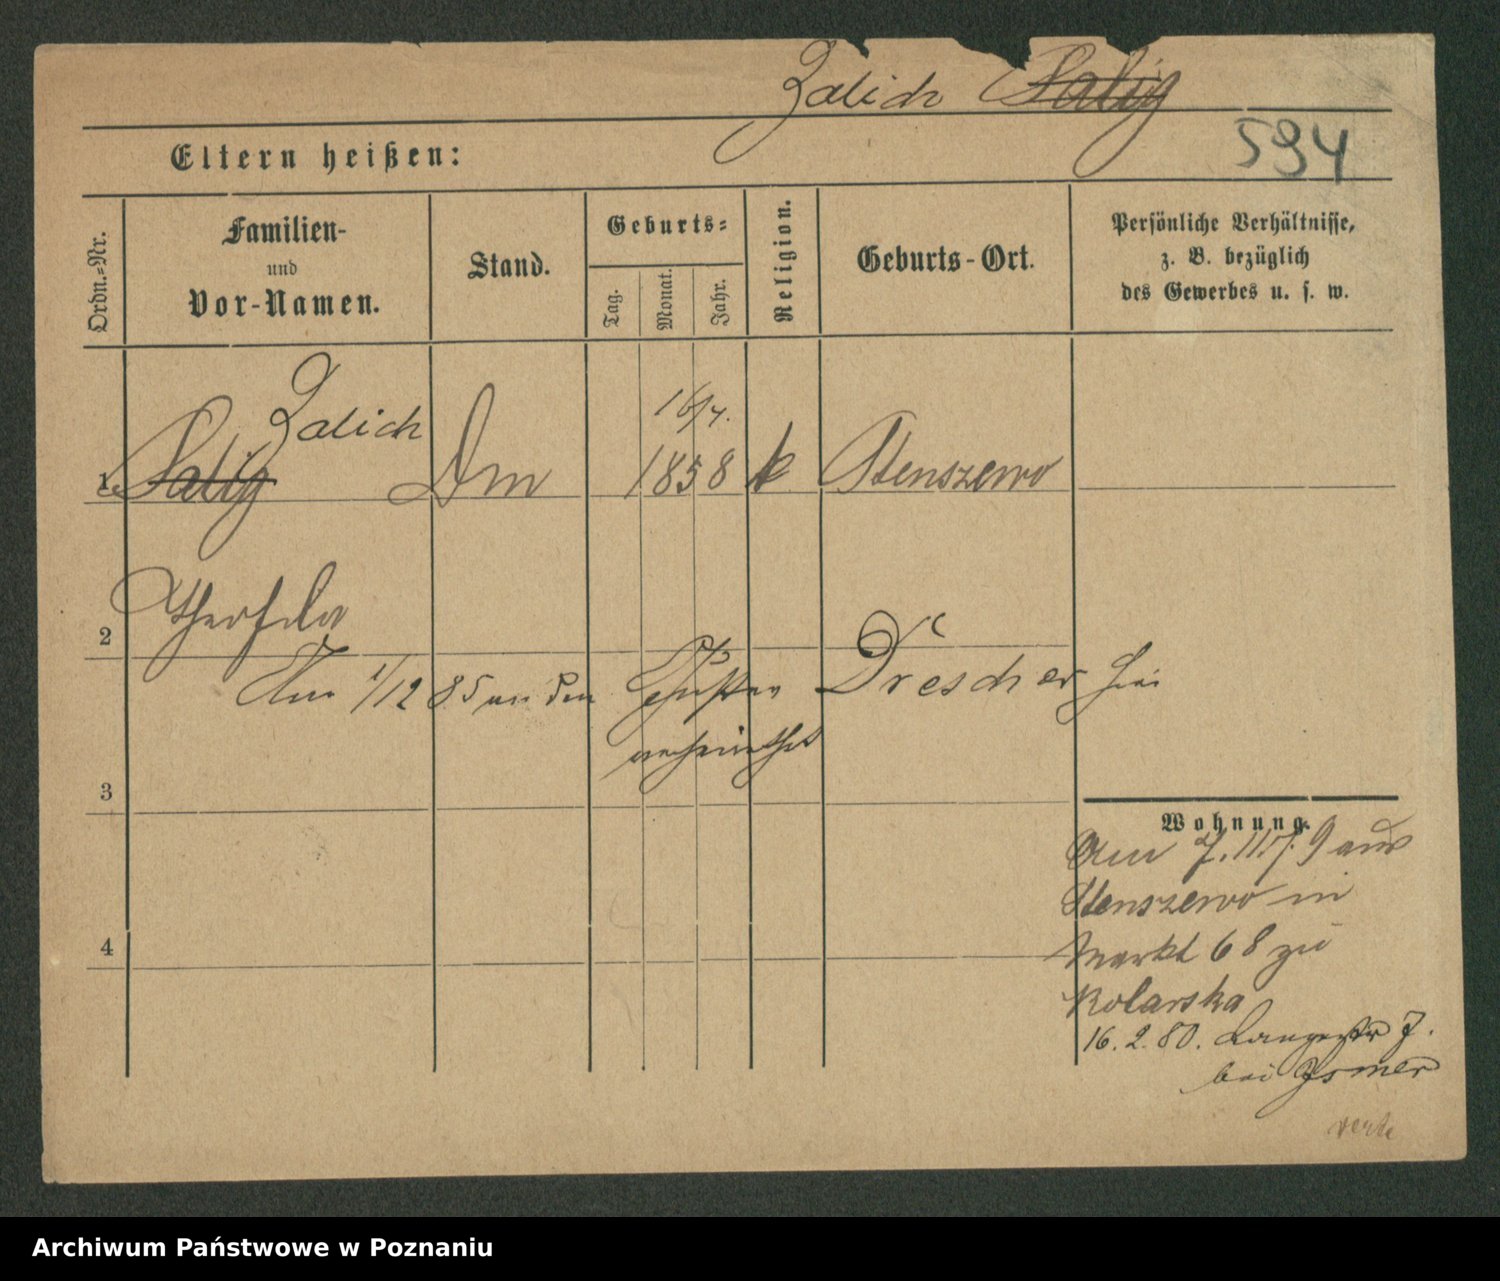 Zalich Salig
594
Eltern heißen:
Ordn.=Nr.
Familien-
und
Vor-Namen.
Stand.
Geburts=
Tag.
Monat.
Jahr.
Religion.
Geburts-Ort.
Persönliche Verhältnisse,
z. B. bezüglich
des Gewerbes u. s. w.
Zalich
16/7.
1. Salig Dm 1858 k Stenszewo
2
Am 1/12 85 an den Drescher hier
verheirathet
3
Wohnung.
Am 7.11.79 aus
Stenszewo in
Markt 68 zu
Kolarska
4
16.2.80. Langestr 7.
bei Ismer
verte
Archiwum Państwowe w Poznaniu